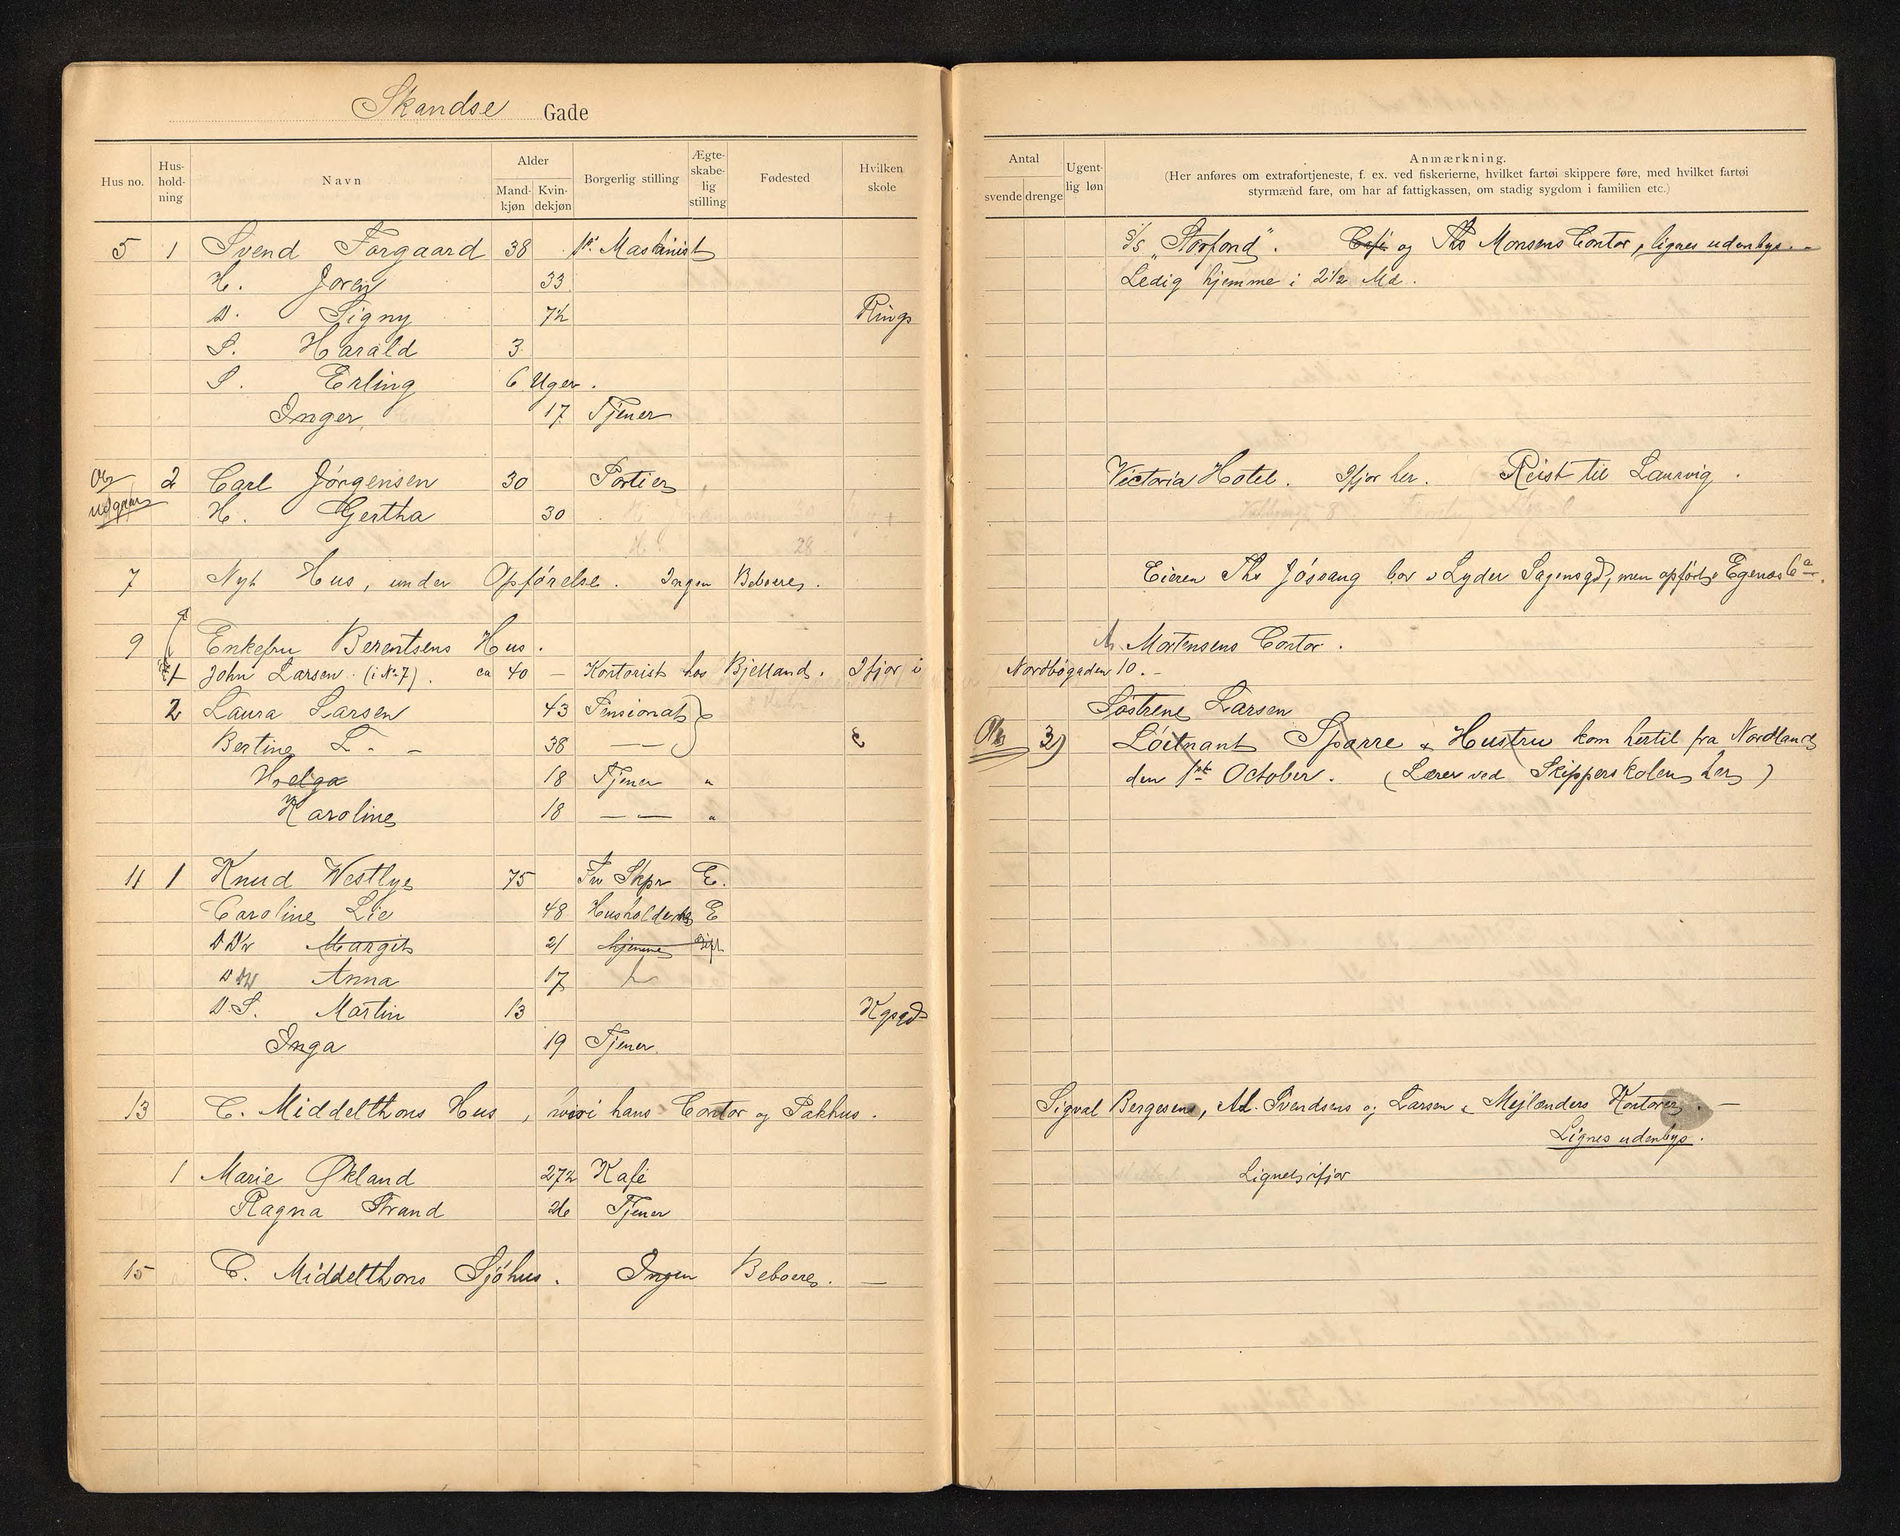 Skandse Gade
Hus no. Hus-hold-ning Navn Alder Mand-kjøn Kvin-dekjøn Borgerlig stilling Ægte-skabe-lig stilling Fødested Hvilken skole
5 1 Svend Forgaard 38 1ste Maskinist
H. Joren 33
D. Signy 7½ Rings
S. Harald 3
S. Erling 6 Uger.
Inger 17 Tjener
2 Carl Jørgensen 30 Portier
udgaar H. Gertha 30
28
7 Nyt Hus, under Opførelse. Ingen Beboere.
9 Enkefru Berentsens Hus.
1 John Larsen (i No 7). ca 40 — Kontorist hos Bjelland. Ifjor i
2 Laura Larsen 43 Pensionat }
Bertine L. – 38 —
Helga 18 Tjener "
Karoline 18 — — "
11 1 Knud Westlye 75 Fv Skpr E.
Caroline Lie 48 Husholderske E
D Dtr Margit 21 hjemme Gift
D Dtr Anna 17
D.S. Martin 13 Kgsgd
Inga 19 Tjener
13 C. Middelthons Hus, hvori hans Contor og Pakhus.
1 Marie Økland 27½ Kafé
Ragna Strand 26 Tjener
15 C. Middelthons Sjøhus. Ingen Beboere. —
Antal svende drenge Ugent-lig løn Anmærkning.
(Her anføres om extrafortjeneste, f. ex. ved fiskerierne, hvilket fartøi skippere føre, med hvilket fartøi
styrmænd fare, om har af fattigkassen, om stadig sygdom i familien etc.)
S/S "Storfond". Café og Ths Monsens Contor, lignes udenbys. –
Ledig hjemme i 2½ Md.
Victoria Hotel. Ifjor her. Reist til Laurvig.
Eieren Ths Jøssang bor i Lyder Sagensgd, men opført i Egenæs
Mortensens Contor.
Nordbøgaden 10. –
Søstrene Larsen
3) Løitnant Sparre & Hustru kom hertil fra Nordland
den 1ste October. (Lærer ved Skipperskolen her)
Sigval Bergesens, Ad. Svendsens og Larsen & Mejlænders Kontorer. —
Lignes udenbys.
Lignet ifjor